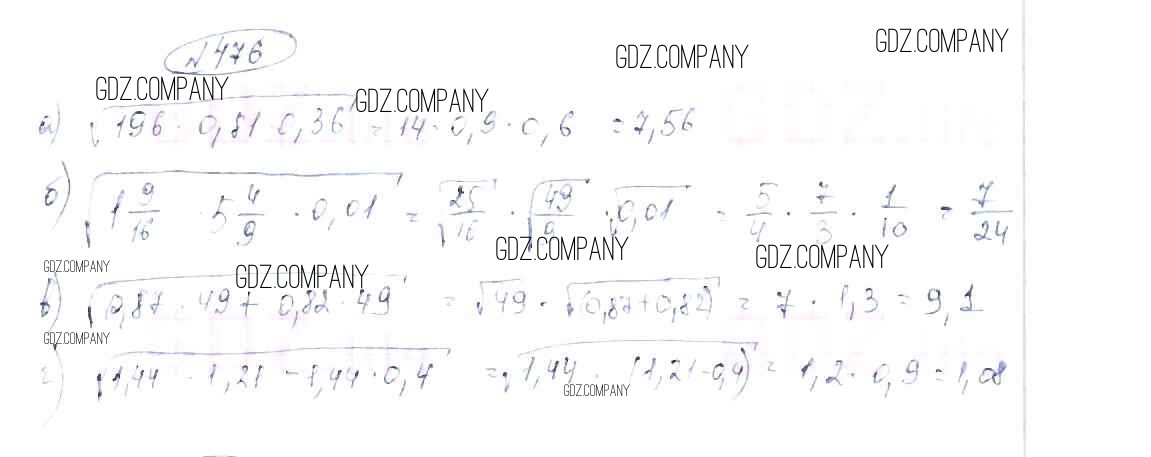 № 476
GDZ.COMPANY
GDZ.COMPANY
GDZ.COMPANY
GDZ.COMPANY
а) √196 · 0,81 · 0,36 = 14 · 0,9 · 0,6 = 7,56
б) √1 9/16 · 5 4/9 · 0,01 = √25/16 · √49/9 · √0,01 = 5/4 · 7/3 · 1/10 = 7/24
GDZ.COMPANY
GDZ.COMPANY
GDZ.COMPANY
GDZ.COMPANY
в) √0,87 · 49 + 0,82 · 49 = √49 · √(0,87+0,82) = 7 · 1,3 = 9,1
GDZ.COMPANY
г) √1,44 · 1,21 - 1,44 · 0,4 = √1,44 · (1,21-0,4) = 1,2 · 0,9 = 1,08
GDZ.COMPANY